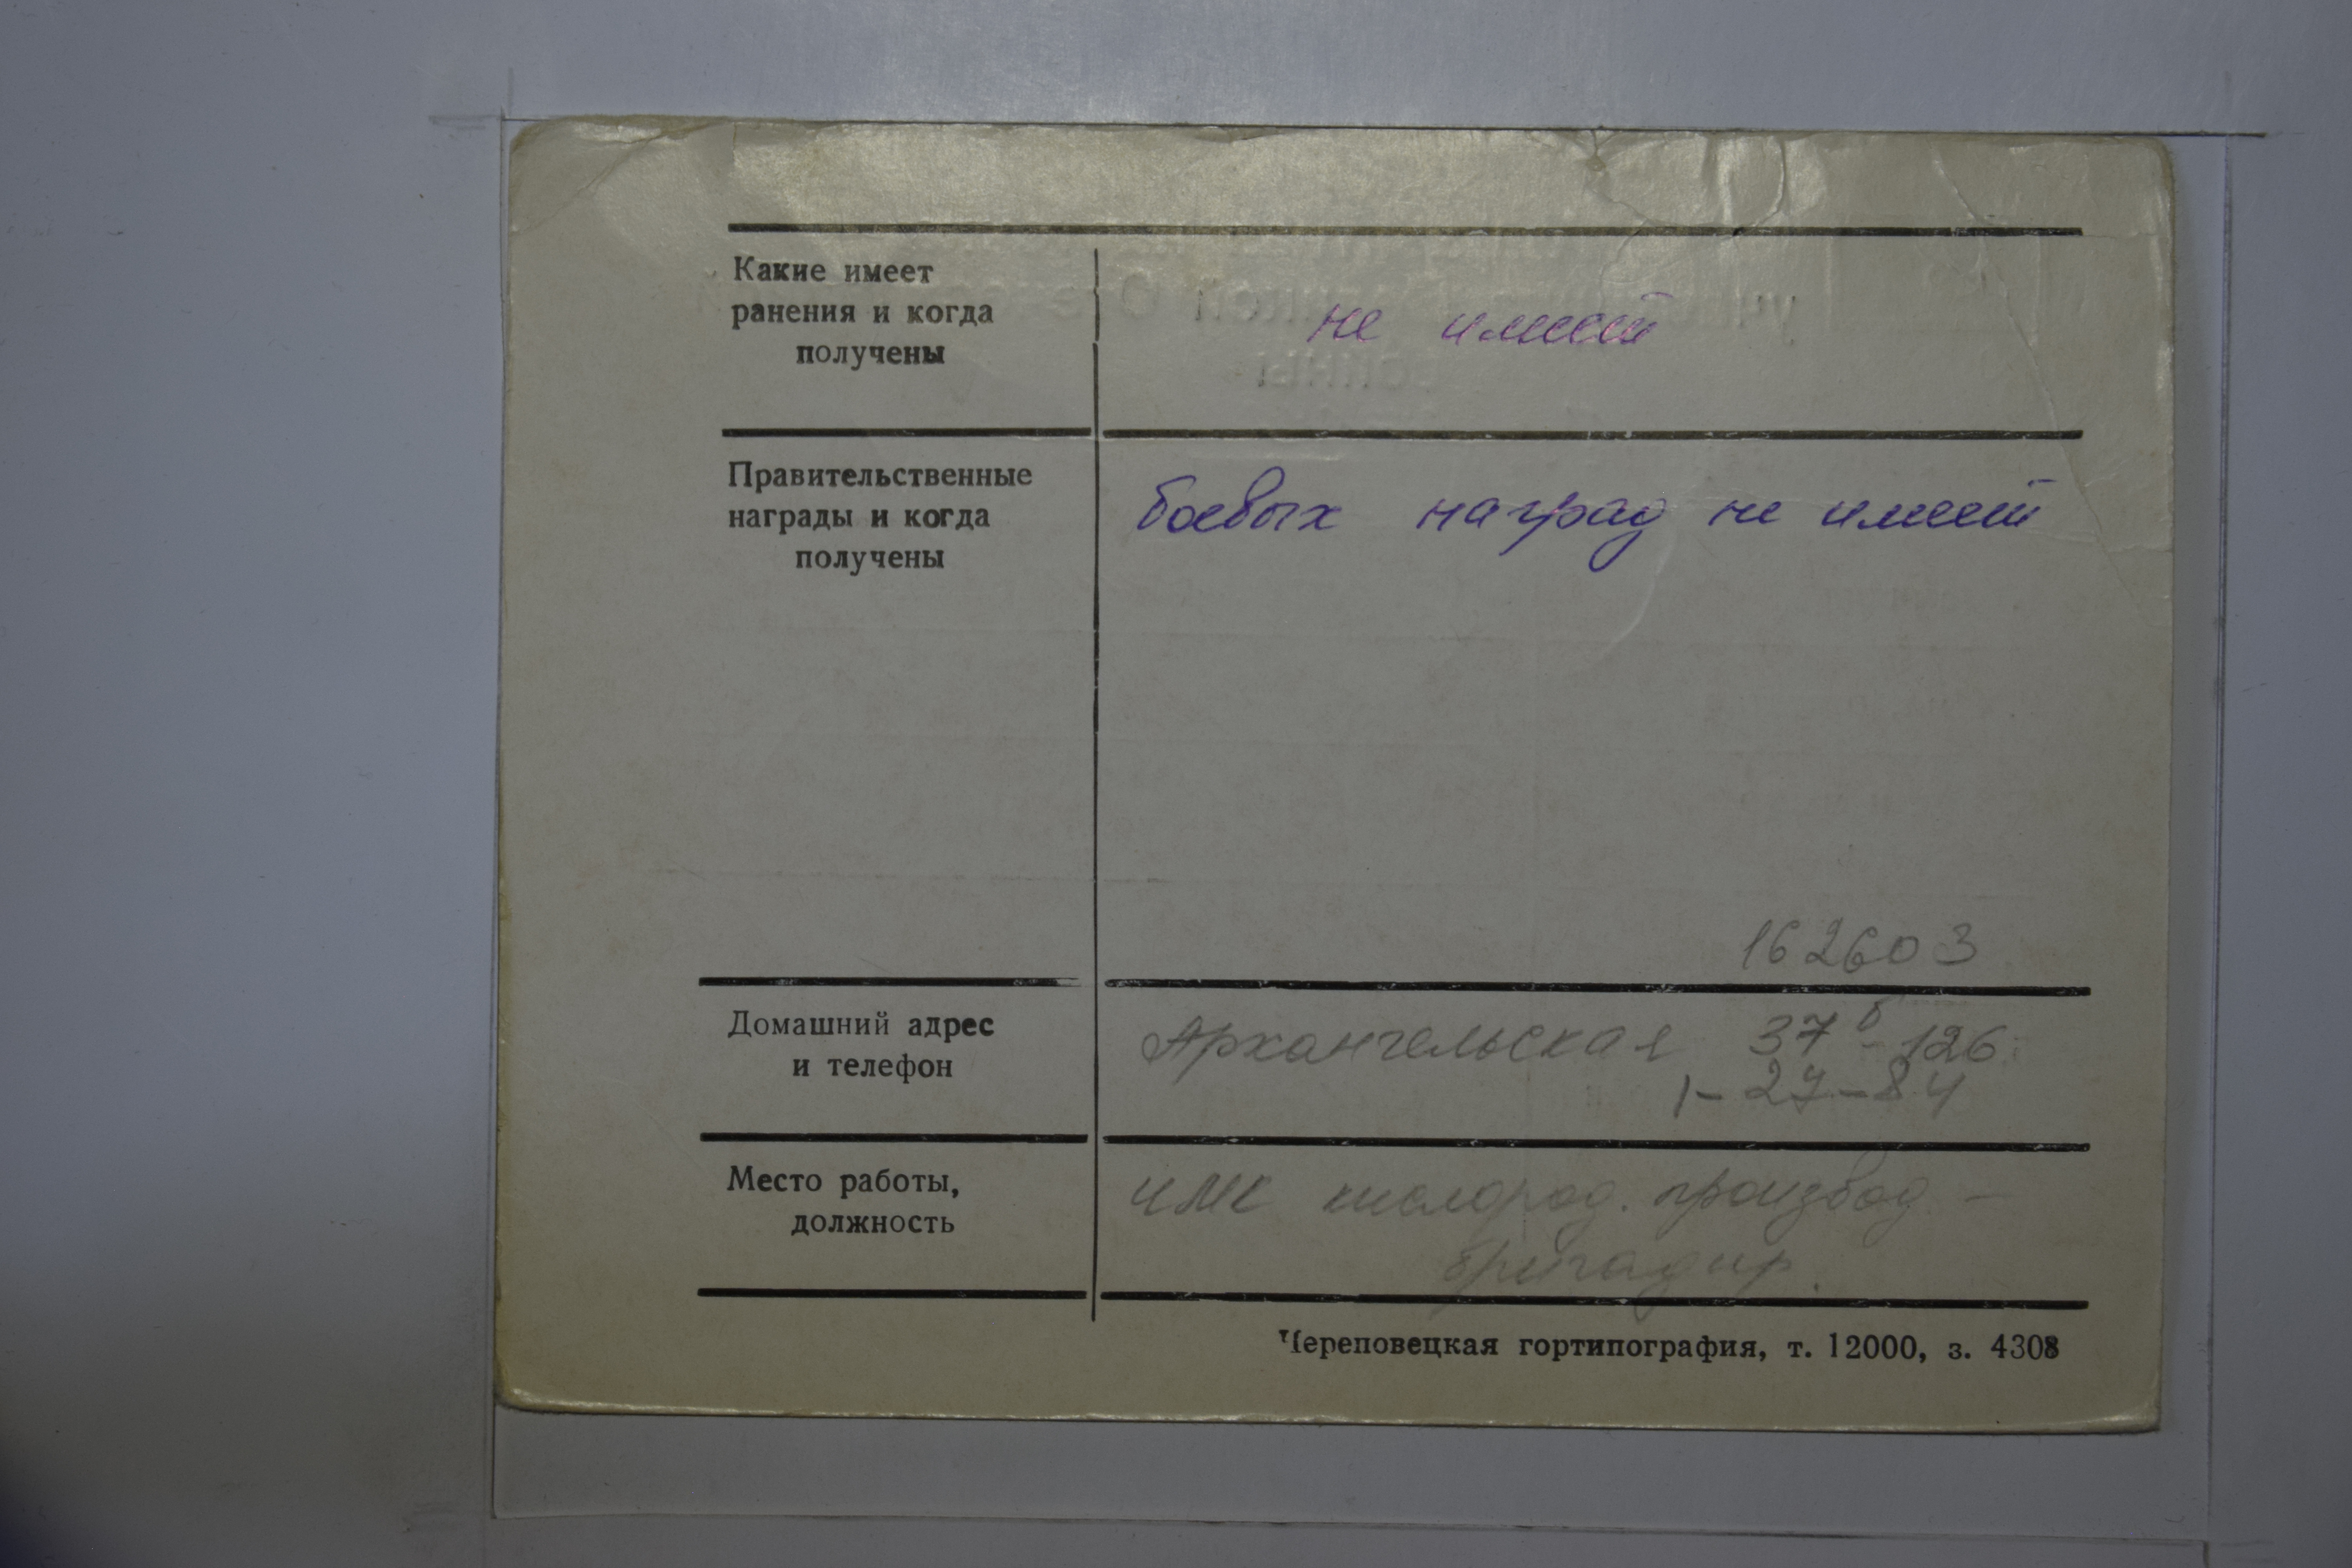 Какие имеет
ранения и когда
получены
не имеет
Правительственные
награды и когда
получены
боевых наград не имеет
162603
Домашний адрес
и телефон
Архангельская 37б-126
1-27-84
Место работы,
должность
ЧМК кислород. производ -
бригадир.
Череповецкая гортипография, т. 12000, з. 4308